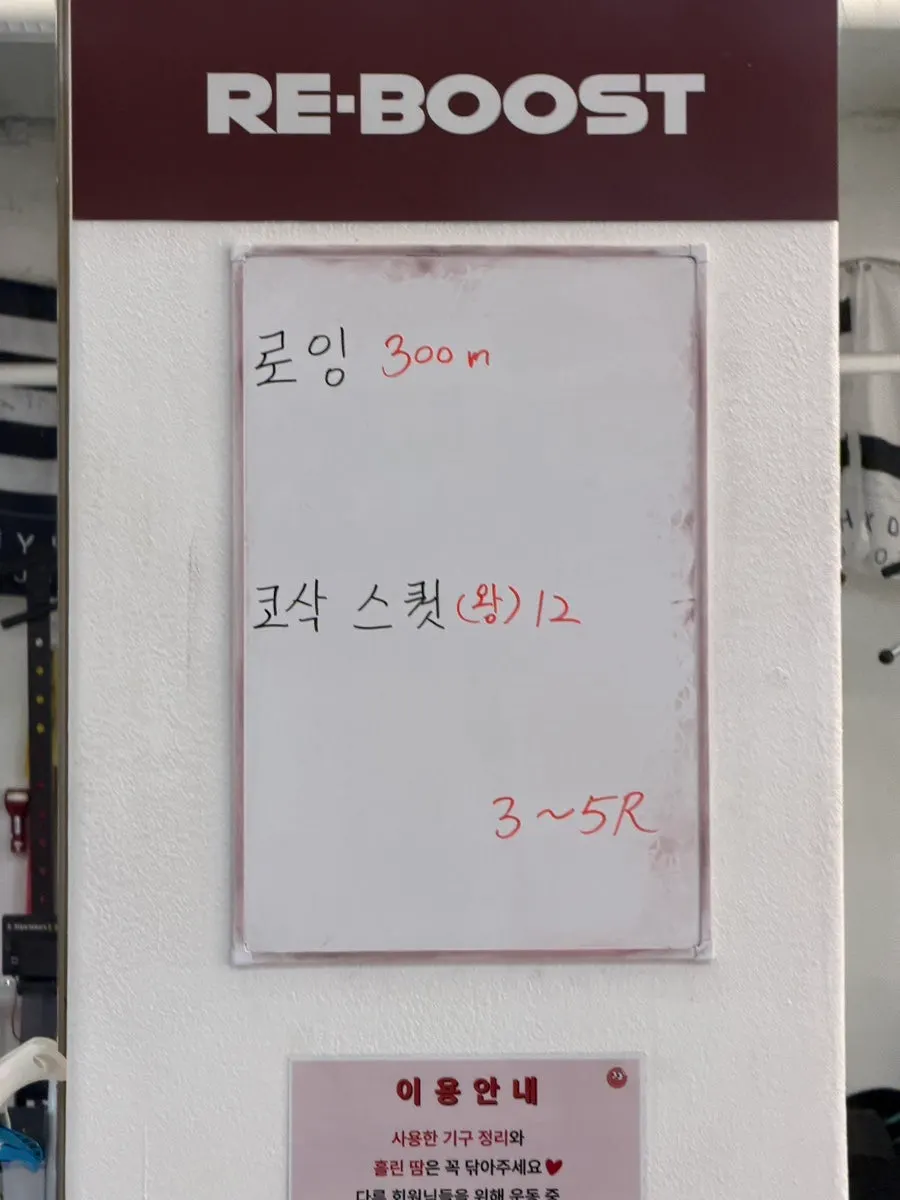 RE-BOOST
로잉 300m
코삭 스퀏(왕)12
3~5R
이용안내
사용한 기구 정리와
흘린 땀은 꼭 닦아주세요♥
다른 회원님들을 위해 운동 중